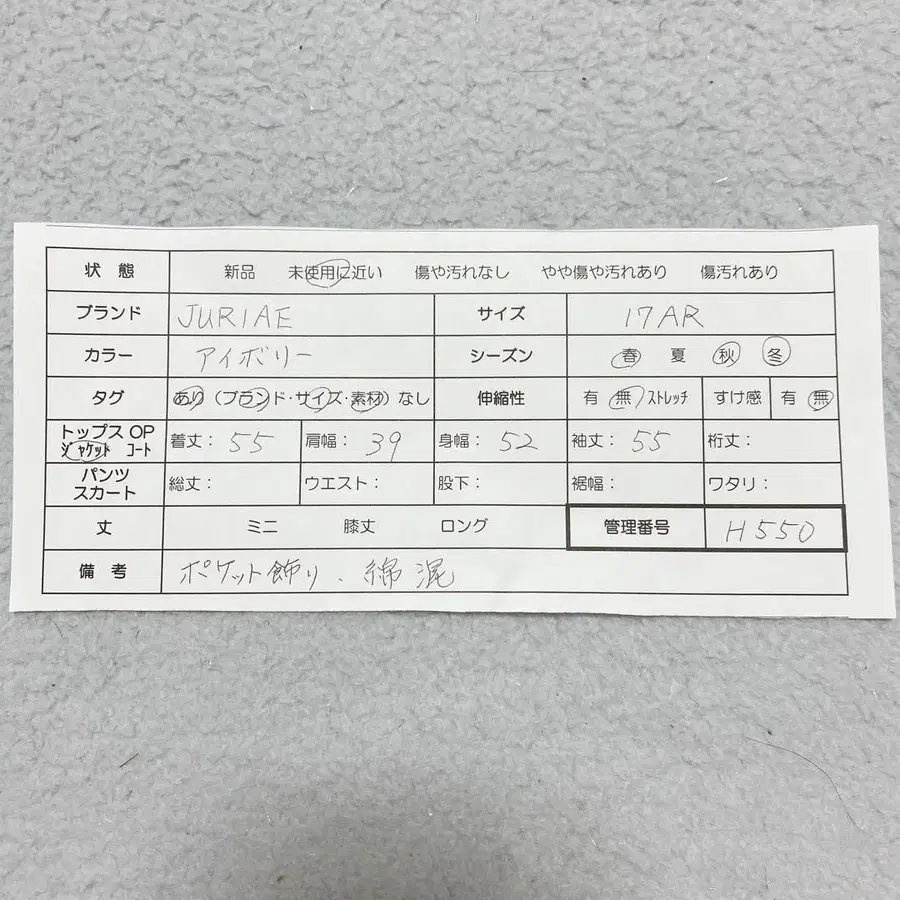 状 態 新品 未使用に近い 傷や汚れなし やや傷や汚れあり 傷汚れあり
ブランド JURIAE サイズ 17AR
カラー アイボリー シーズン 春 夏 秋 冬
タグ あり(ブランド・サイズ・素材)なし 伸縮性 有 無 ストレッチ すけ感 有 無
トップス OP
ジャケット コート 着丈: 55 肩幅: 39 身幅: 52 袖丈: 55 裄丈:
パンツ
スカート 総丈: ウエスト: 股下: 裾幅: ワタリ:
丈 ミニ 膝丈 ロング 管理番号 H550
備 考 ポケット飾り、綿混